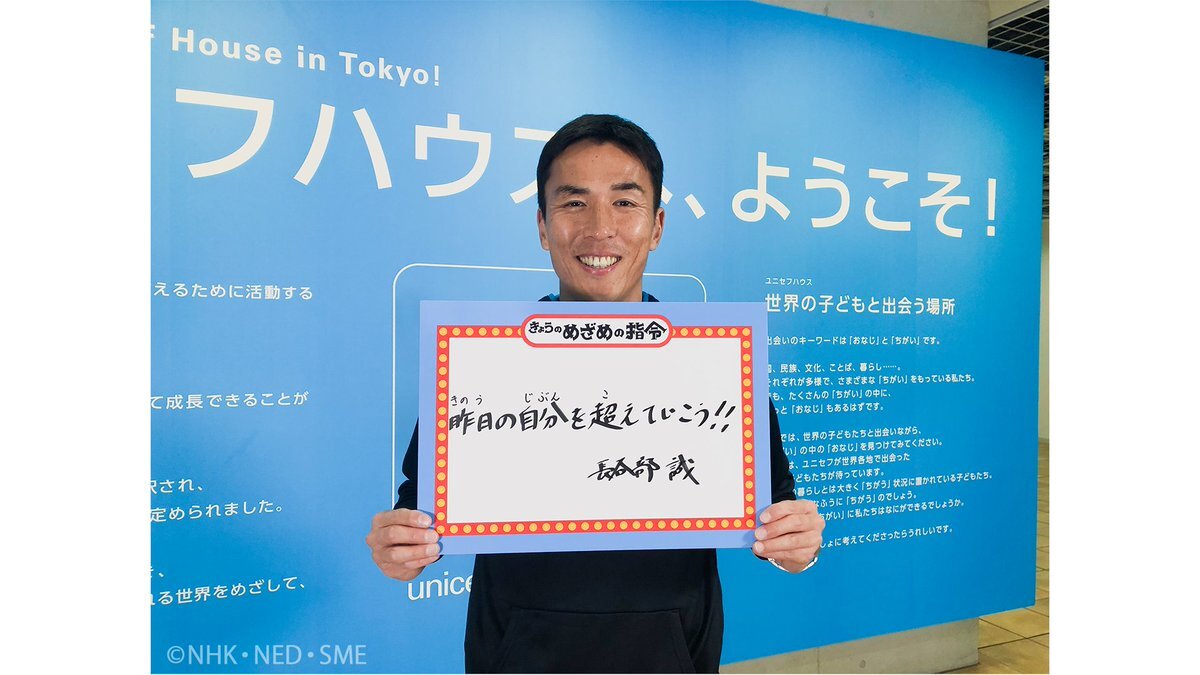 F House in Tokyo!
フハウスへ、ようこそ!
えるために活動する
て成長できることが
択され、
定められました。
れる世界をめざして、
unice
ユニセフハウス
世界の子どもと出会う場所
出会いのキーワードは「おなじ」と「ちがい」です。
民族、文化、ことば、暮らし……。
それぞれが多様で、さまざまな「ちがい」をもっている私たち。
も、たくさんの「ちがい」の中に、
っと「おなじ」もあるはずです。
では、世界の子どもたちと出会いながら、
い」の中の「おなじ」を見つけてみてください。
は、ユニセフが世界各地で出会った
どもたちが待っています。
暮らしとは大きく「ちがう」状況に置かれている子どもたち。
なふうに「ちがう」のでしょう。
ちがい」に私たちはなにができるでしょうか。
しょに考えてくださったらうれしいです。
きょうのめざめの指令
きのう じぶん こ
昨日の自分を超えていこう!!
長谷部 誠
©NHK・NED・SME